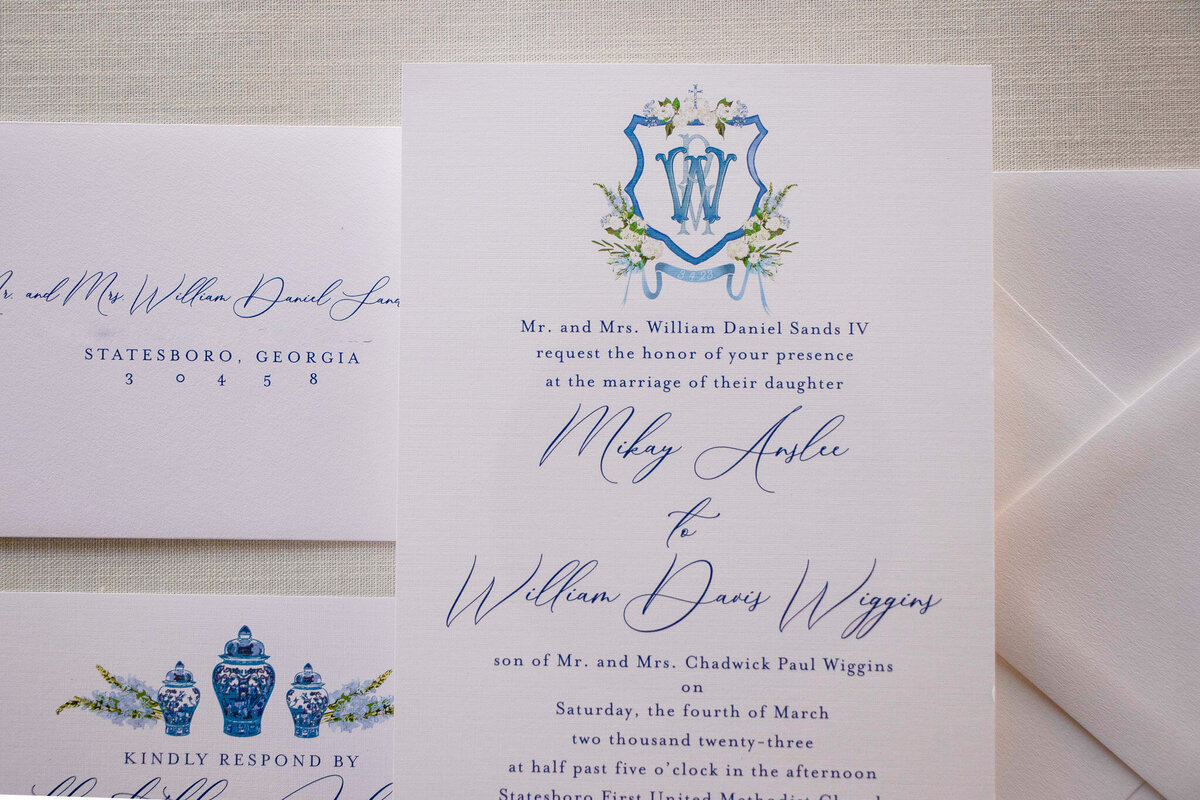 Mr. and Mrs. William Daniel
STATESBORO, GEORGIA
3 0 4 5 8
KINDLY RESPOND BY
3.4.23
Mr. and Mrs. William Daniel Sands IV
request the honor of your presence
at the marriage of their daughter
Mikay Anslee
to
William Davis Wiggins
son of Mr. and Mrs. Chadwick Paul Wiggins
on
Saturday, the fourth of March
two thousand twenty-three
at half past five o'clock in the afternoon
Statesboro First United Methodist Church